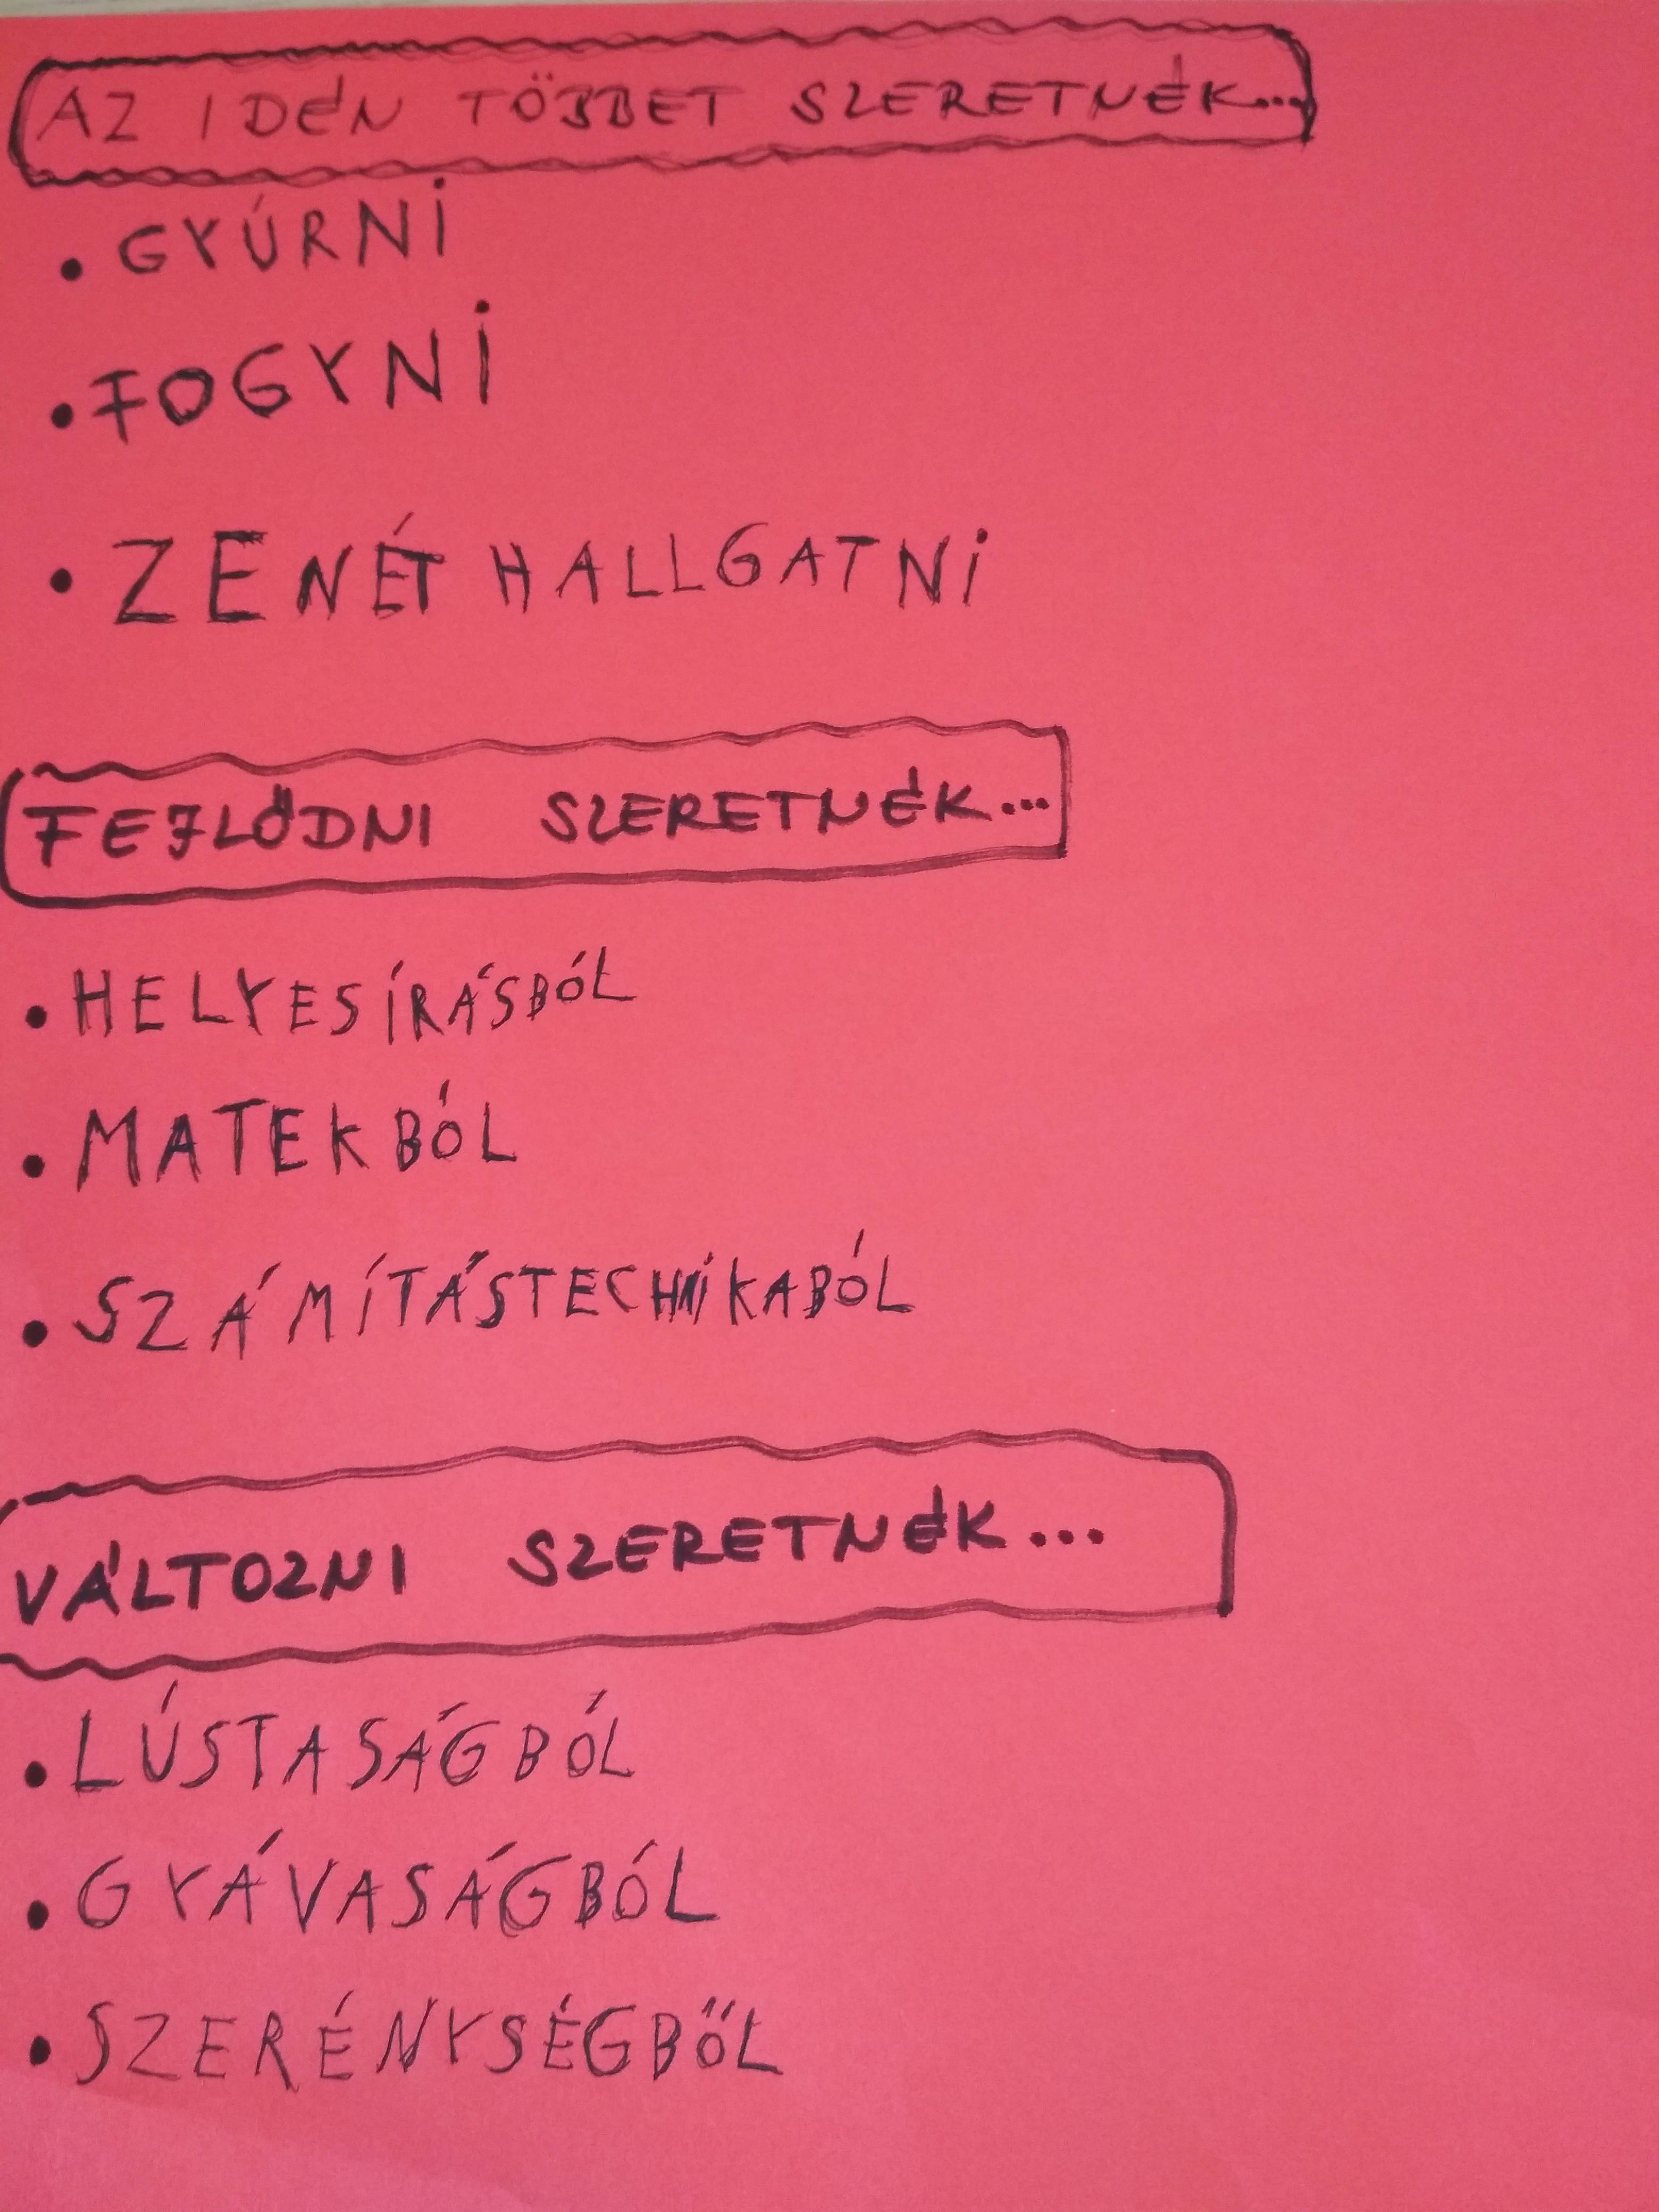 AZ IDÉN TÖBBET SZERETNÉK...
• GYÚRNI
• FOGYNI
• ZENÉT HALLGATNI
FEJLŐDNI SZERETNÉK...
• HELYESÍRÁSBÓL
• MATEKBÓL
• SZÁMÍTÁSTECHNIKABÓL
VÁLTOZNI SZERETNÉK...
• LÚSTASÁGBÓL
• GYÁVASÁGBÓL
• SZERÉNYSÉGBŐL